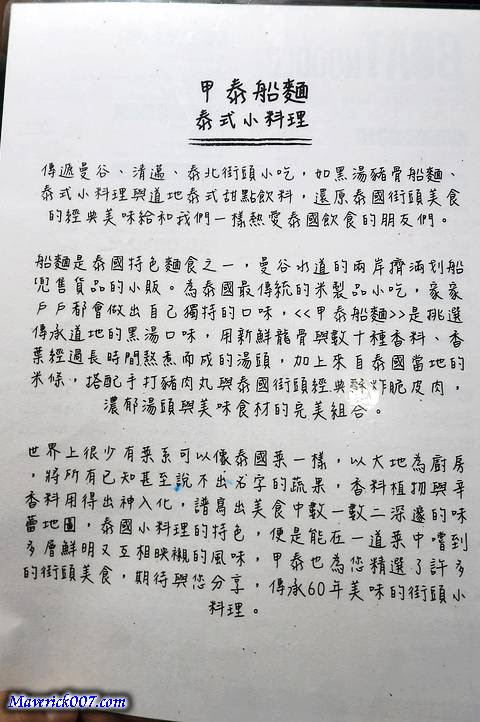 甲泰船麵
泰式小料理
傳遞曼谷、清邁、泰北街頭小吃，如黑湯豬骨船麵、
泰式小料理與道地泰式甜點飲料，還原泰國街頭美食
的經典美味給和我們一樣熱愛泰國飲食的朋友們。
船麵是泰國特色麵食之一，曼谷水道的兩岸擠滿划船
兜售貨品的小販。為泰國最傳統的米製品小吃，家家
戶戶都會做出自己獨特的口味，<<甲泰船麵>>是挑選
傳承道地的黑湯口味，用新鮮龍骨與數十種香料、香
葉經過長時間熬煮而成的湯頭，加上來自泰國當地的
米條，搭配手打豬肉丸與泰國街頭經典酥炸脆皮肉，
濃郁湯頭與美味食材的完美組合。
世界上很少有菜系可以像泰國菜一樣，以大地為廚房
，將所有已知甚至說不出名字的蔬果，香料植物與辛
香料用得出神入化，譜寫出美食中數一數二深邃的味
蕾地圖，泰國小料理的特色，便是能在一道菜中嚐到
多層鮮明又互相映襯的風味，甲泰也為您精選了許多
的街頭美食，期待與您分享，傳承60年美味的街頭小
料理。
Maverick007.com